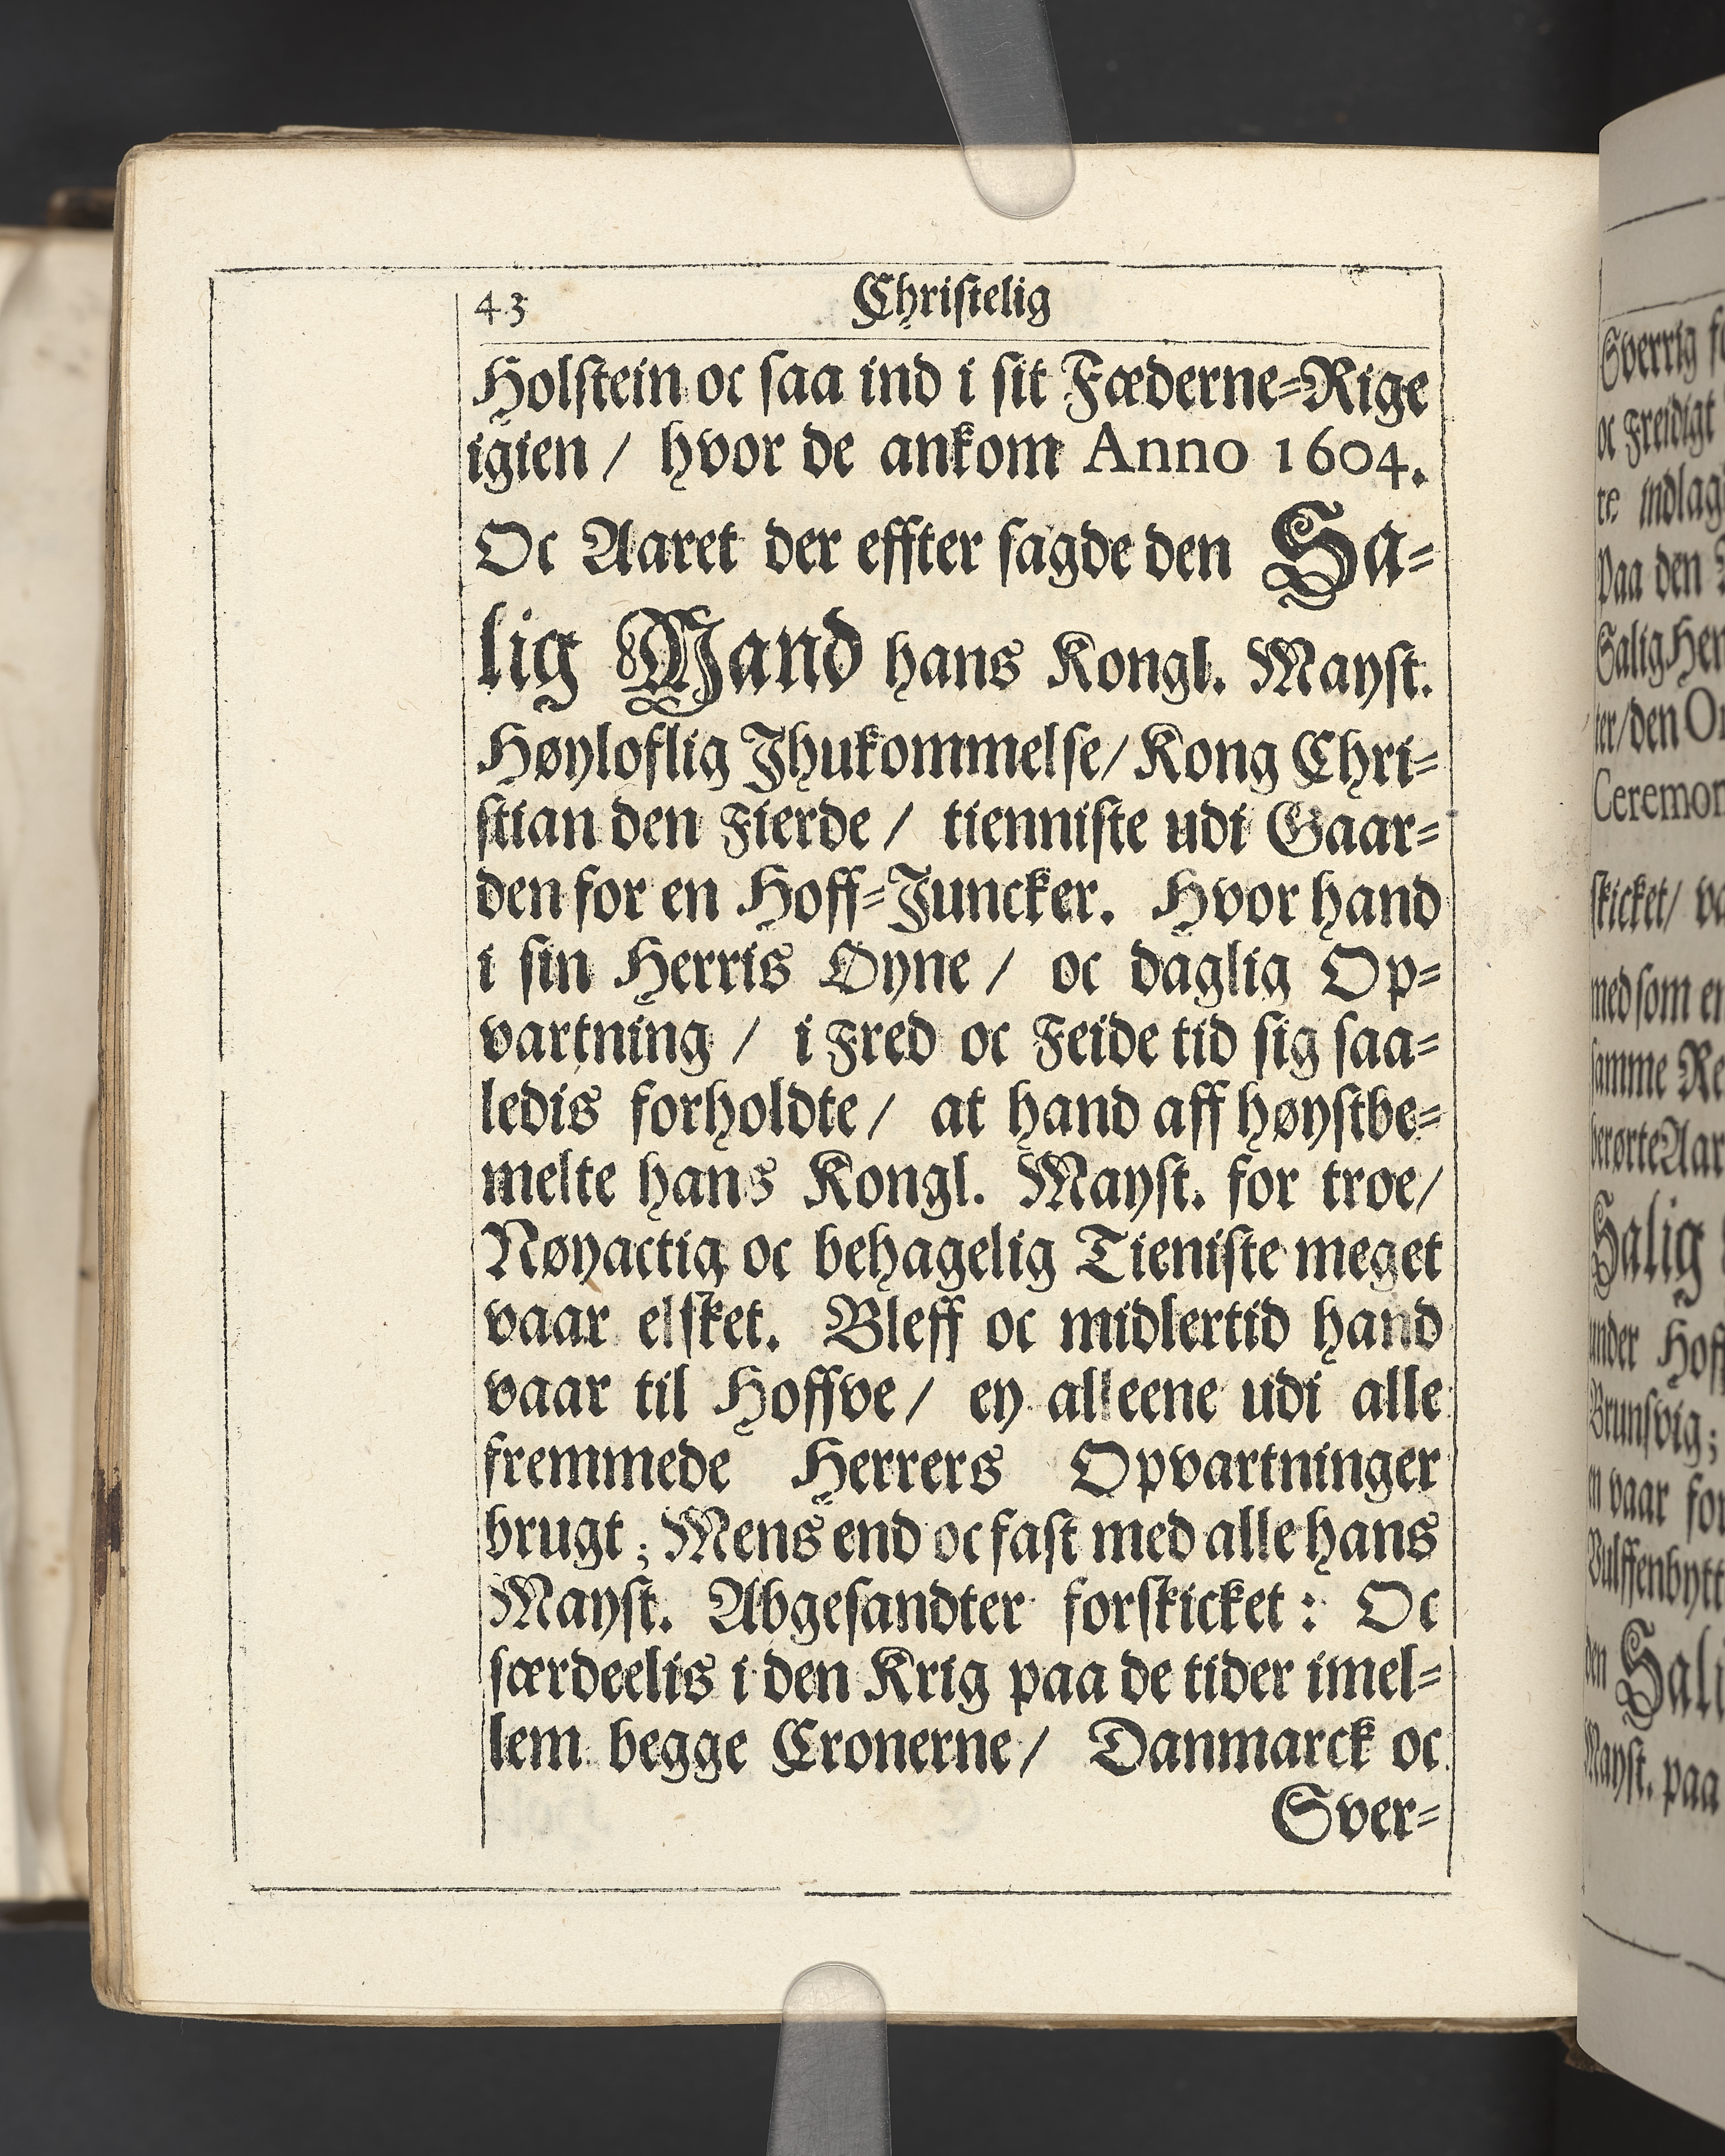 43 Christelig
Holstein oc saa ind i sit Fæderne=Rige
igien / hvor de ankom Anno 1604.
Oc Aaret der effter sagde den Sa=
lig Mand hans Kongl. Mayst.
Høyloflig Jhukommelse/ Kong Chri=
stian den Fierde / tienniste udi Gaar=
den for en Hoff=Juncker. Hvor hand
i sin Herris Øyne / oc daglig Op=
vartning / i Fred oc Feide tid sig saa=
ledis forholdte / at hand aff høystbe=
melte hans Kongl. Mayst. for troe/
Nøyactig oc behagelig Tieniste meget
vaar elsket. Bleff oc midlertid hand
vaar til Hoffve / ey alleene udi alle
fremmede Herrers Opvartninger
brugt ; Mens end oc fast med alle hans
Mayst. Abgesandter forskicket : Oc
særdeelis i den Krig paa de tider imel=
lem begge Cronerne / Danmarck oc
Sver=
Sverrig
oc Freidigt
te indlag
Paa den
Salig Her
ter/den
Ceremon
skicket/ va
med som en
samme Re
berørte Aar
Salig
under Hoff
Brunsvig;
en vaar for
Vulffenbytt
den Sali
Mayst. paa